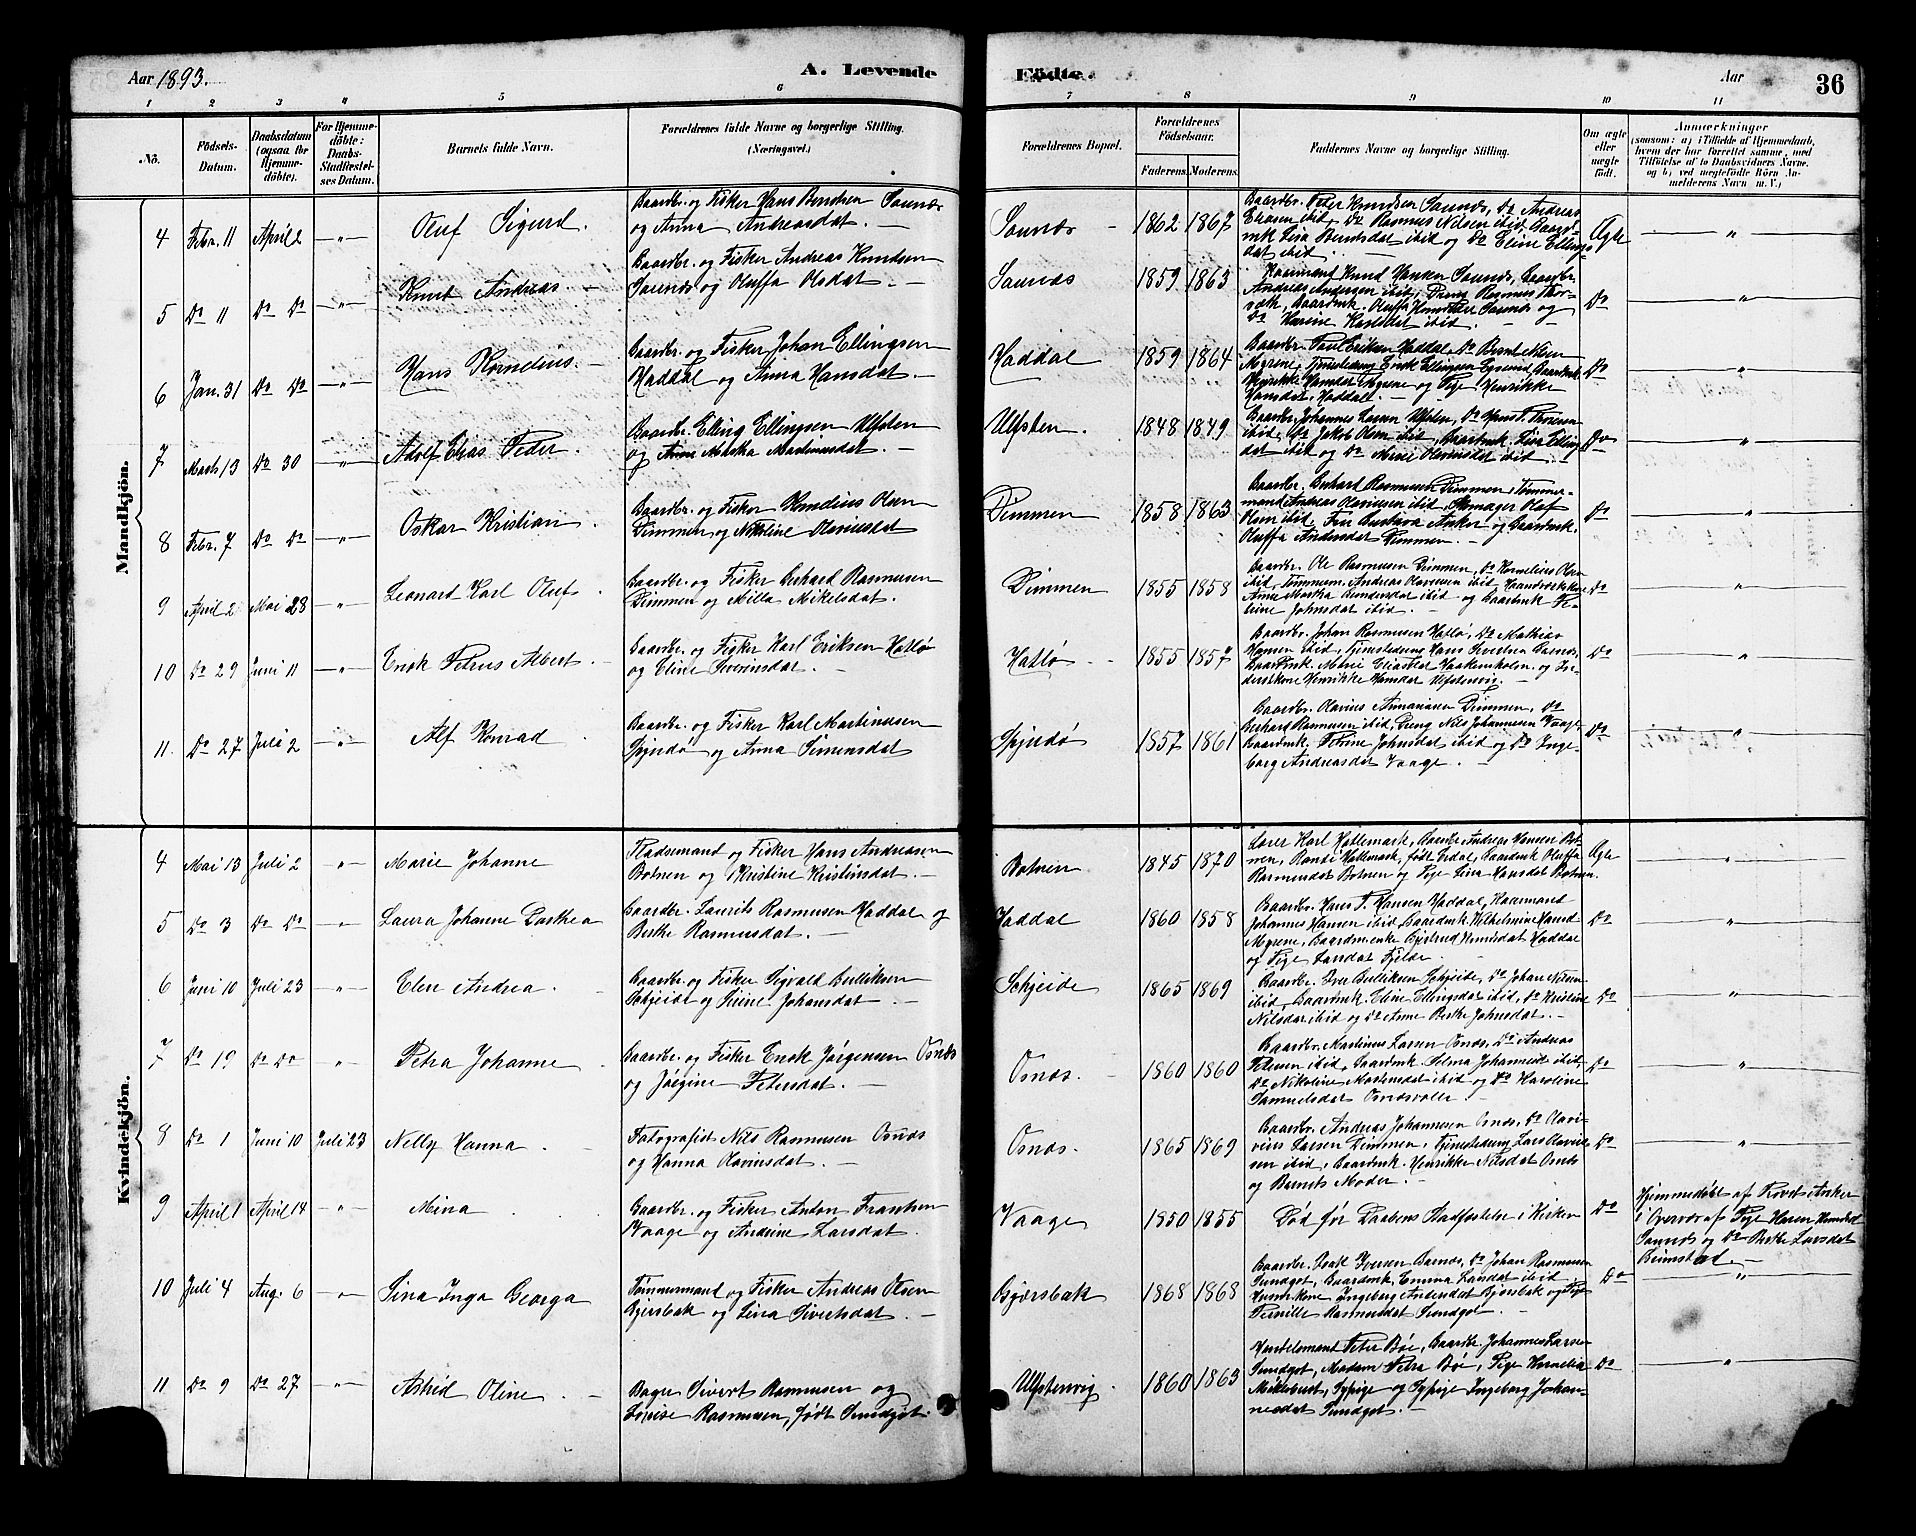 Aar 1893. A. Levende
Födte. Aar 36
1 2 3 4 5 6
7 8 9 10 11
Nö.
Födsels-
Datum.
Daabsdatum
(ogsaa for
Hjemme-
döbte).
For Hjemme-
döbte:
Daabs-
Stadfæstel-
ses Datum.
Barnets fulde Navn.
Forældrenes fulde Navne og borgerlige Stilling.
(Næringsvei.)
Forældrenes Bopæl.
Forældrenes
Födselsaar.
Faderens. Moderens.
Faddernes Navne og borgerlige Stilling.
Om ægte
eller
uægte
födt.
Anmærkninger
(saasom: a) i Tilfælde af Hjemmedaab,
hvem der har forrettet samme, med
Tilföielse af to Daabsvidners Navne,
og b) ved uægtefödte Börn An-
melderens Navn m. V.)
Mandkjön.
4 Febr. 11 April 2 —„— Oluf Sigurd.
Gaardbr. og Fisker Hans Berntsen Saunæs
og Anna Andreasdat. —
Saunæs 1862 1867
Gaardbr. Peter Knudsen Saunæs, Do Andreas
ibid, Do Rasmus Nilsen ibid, Gaard-
mk Lisa Berntsdat ibid og Do Eline Ellings-
dat ibid.
Ægte „
5 Do 11 Do Do —„— Knut Andreas —
Gaardbr. og Fisker Andreas Knudsen
Saunæs og Oluffa Olsdat. —
Saunæs 1859 1863
Knud Saunæs, Gaardbr.
Andreas Andersen ibid, Dreng Rasmus Thor-
Gaardmk. Oluffa Saunæs og
Do Karine Karlsdat ibid.
Do „
6 Jan. 31 Do Do —„— Hans Kornelius. —
Gaardbr. og Fisker Johan Ellingsen
Haddal og Anna Hansdat. —
Haddal 1859 1864
Gaardbr. Paul Eriksen Haddal, Do Bernt Nilsen
Myrene, Tjenestedreng Enok Ellingsen Gaardmk.
Henrikke Myrene og Pige Henrikke
Hansdat, Haddal. —
Do „
7 Marts 13 Do 30 —„— Adolf Elias Peder
Gaardbr. Elling Ellingsen Ulfsten
og Anne Martha Martinusdat. —
Ulfsten. 1848 1849
Gaardbr. Johannes Larsen Ulfsten, Do Hans
ibid, Do Jakob Olsen ibid, Gaardmk Lisa Elling-
dat ibid og Do Marie Olavinsdat ibid.
Do „
8 Febr. 7 Do Do —„— Oskar Kristian.
Gaardbr. og Fisker Kornelius Olsen
Dimmen og Nikoline Rasmusdat
Dimmen 1858 1863
Gaardbr. Gerhard Rasmussen Dimmen, Tømmer-
mand Andreas Olavinsen ibid, Skomager Olaf
Olsen ibid, Fru Gustava Anker og Gaardmk.
Oluffa Andersdat Dimmen. —
Do „
9 April 2 Mai 28 —„— Leonard Karl Oluf.
Gaardbr. og Fisker Gerhard Rasmusen
Dimmen og Milla Mikelsdat.
Dimmen 1855 1858
Gaardbr. Ole Rasmusen Dimmen, Do Kornelius Olsen
ibid, Tømmerm. Andreas Olavinsen ibid
Anne Martha ibid og Gaardmk Pe-
trine Johnsdat ibid. —
Do „
10 Do 29 Juni 11 —„— Enok Petrus Albert. —
Gaardbr. og Fisker Karl Eriksen Hatlø
og Eline Severinsdat. —
Hatlø - 1855 1857
Gaardbr. Johan Rasmusen Hatlø, Do Mathias
Hansen ibid, Tjenestedreng Hans
Gaardmk. Marie Eliasdat Haakonsholm og In-
derstkone Henrikke Hansdat Ulfstenvig. —
Do „
11. Do 27 Juli 2 —„— Alf Konrad
Gaardbr. og Fisker Karl Martinusen
Spjudø og Anna Simensdat
Spjudø 1857 1861
Gaardbr. Olavius Dimmen, Do
Gerhard Rasmusen ibid, Dreng Nils Johannesen Vaage,
Gaardmk. Petrine Johnsdat ibid og Do Inge-
borg Andreasdat Vaage. —
Do „
Kvindekjön.
4 Mai 13 Juli 2 „ Marie Johanne
Pladsemand og Fisker Hans Andreasen
Botnen og Kristine Kristinsdat. —
Botnen 1845 1870
Lærer Karl Hattemark, Gaardbr Andreas Hansen Bot-
nen, Hattemark, født Gaardmk Oluffa
Rasmusdat Botnen og Pige Lina Hansdat Botnen.
Ægte „
5 Do 3 Do Do „ Laura Johanne Dorthea
Gaardbr. Laurits Rasmusen Haddal og
Berthe Rasmusdat. —
Haddal 1860 1858
Gaardbr. Hans P. Hansen Haddal,
Johannes Hansen ibid, Gaardmk Vilhelmine
Myrene, Gaardmenke Haddal
og Pige Larsdat Fjelde.
Do „
6 Juni 10 Juli 23 „ Elen Andrea. -
Gaardbr. og Fisker Sigvald Bulliksen
Schjeide og Severine Johansdat. —
Schjeide 1865 1869
Gaardbr. Iver Bulliksen Schjeide, Do Johan Nilsen
ibid, Gaardmk. Eline Ellingsdat ibid, Do Kristine
Nilsdat ibid og Do Anne Berthe Johnsdat. —
Do „
7 Do 19 Do Do „ Petra Johanne
Gaardbr. og Fisker Enok Jørgensen Osnæs
og Jørgine Petersdat. —
Osnæs. 1860 1860
Gaardbr. Martinus Larsen Osnæs, Do Andreas
Petersen ibid, Gaardmk. ibid,
Do Nikoline Mortensdat ibid og Do Karoline
Samuelsdat Osnæsvolle.
Do „
8 Do 1 Juni 10 Juli 23 Nelly Hanna. -
Fotografist Nils Rasmusen Osnæs
og Hanna Olavinsdat. —
Osnæs. 1865 1869
Gaardbr. Andreas Johannesen Osnæs, Do Olavi-
Larsen Dimmen, Tjenestedreng Lars Olavin-
sen ibid, Gaardmk. Henrikke Nilsdat Osnæs
og Barnets Moder. —
Do „
9 April 1 April 14 „ Mina
Gaardbr. og Fisker Anton Frantsen
Vaage og Andrine Larsdat.
Vaage 1850 1855
Død før Daabens Stadfæstelse i Kirken
Do
Hjemmedøbt af Provst Anker
i Overvær af Pige Karen
Saunæs og Do Berthe Larsdat
10 Juli 4 Aug. 6 „ Lina Inga Georga
Tømmermand og Fisker Andreas Olsen
Gjersbak og Lina Sivertsdat. —
Gjærsbak 1868 1868
Gaardbr. Iversen Do Johan Rasmusen
Sundgot, Gaardmk. Emma Larsdat ibid,
Ingeborg Andersdat Gjersbak og Pige
Pernille Rasmusdat Sundgot. —
Do „
11 Do 9 Do 27 „ Astrid Oline. —
Bager Sivert Rasmussen og
Lovise Rasmussen, født Sundgot.
Ulfstenvig. 1860 1863
Handelsmand Peter Bøe, Gaardbr. Johannes Larsen
Sundgot, Madam Petra Bøe, Pige Kornelia
Myklebust, Sypige og Sypige Ingeborg Johan-
nesdat Sundgot. —
Do „